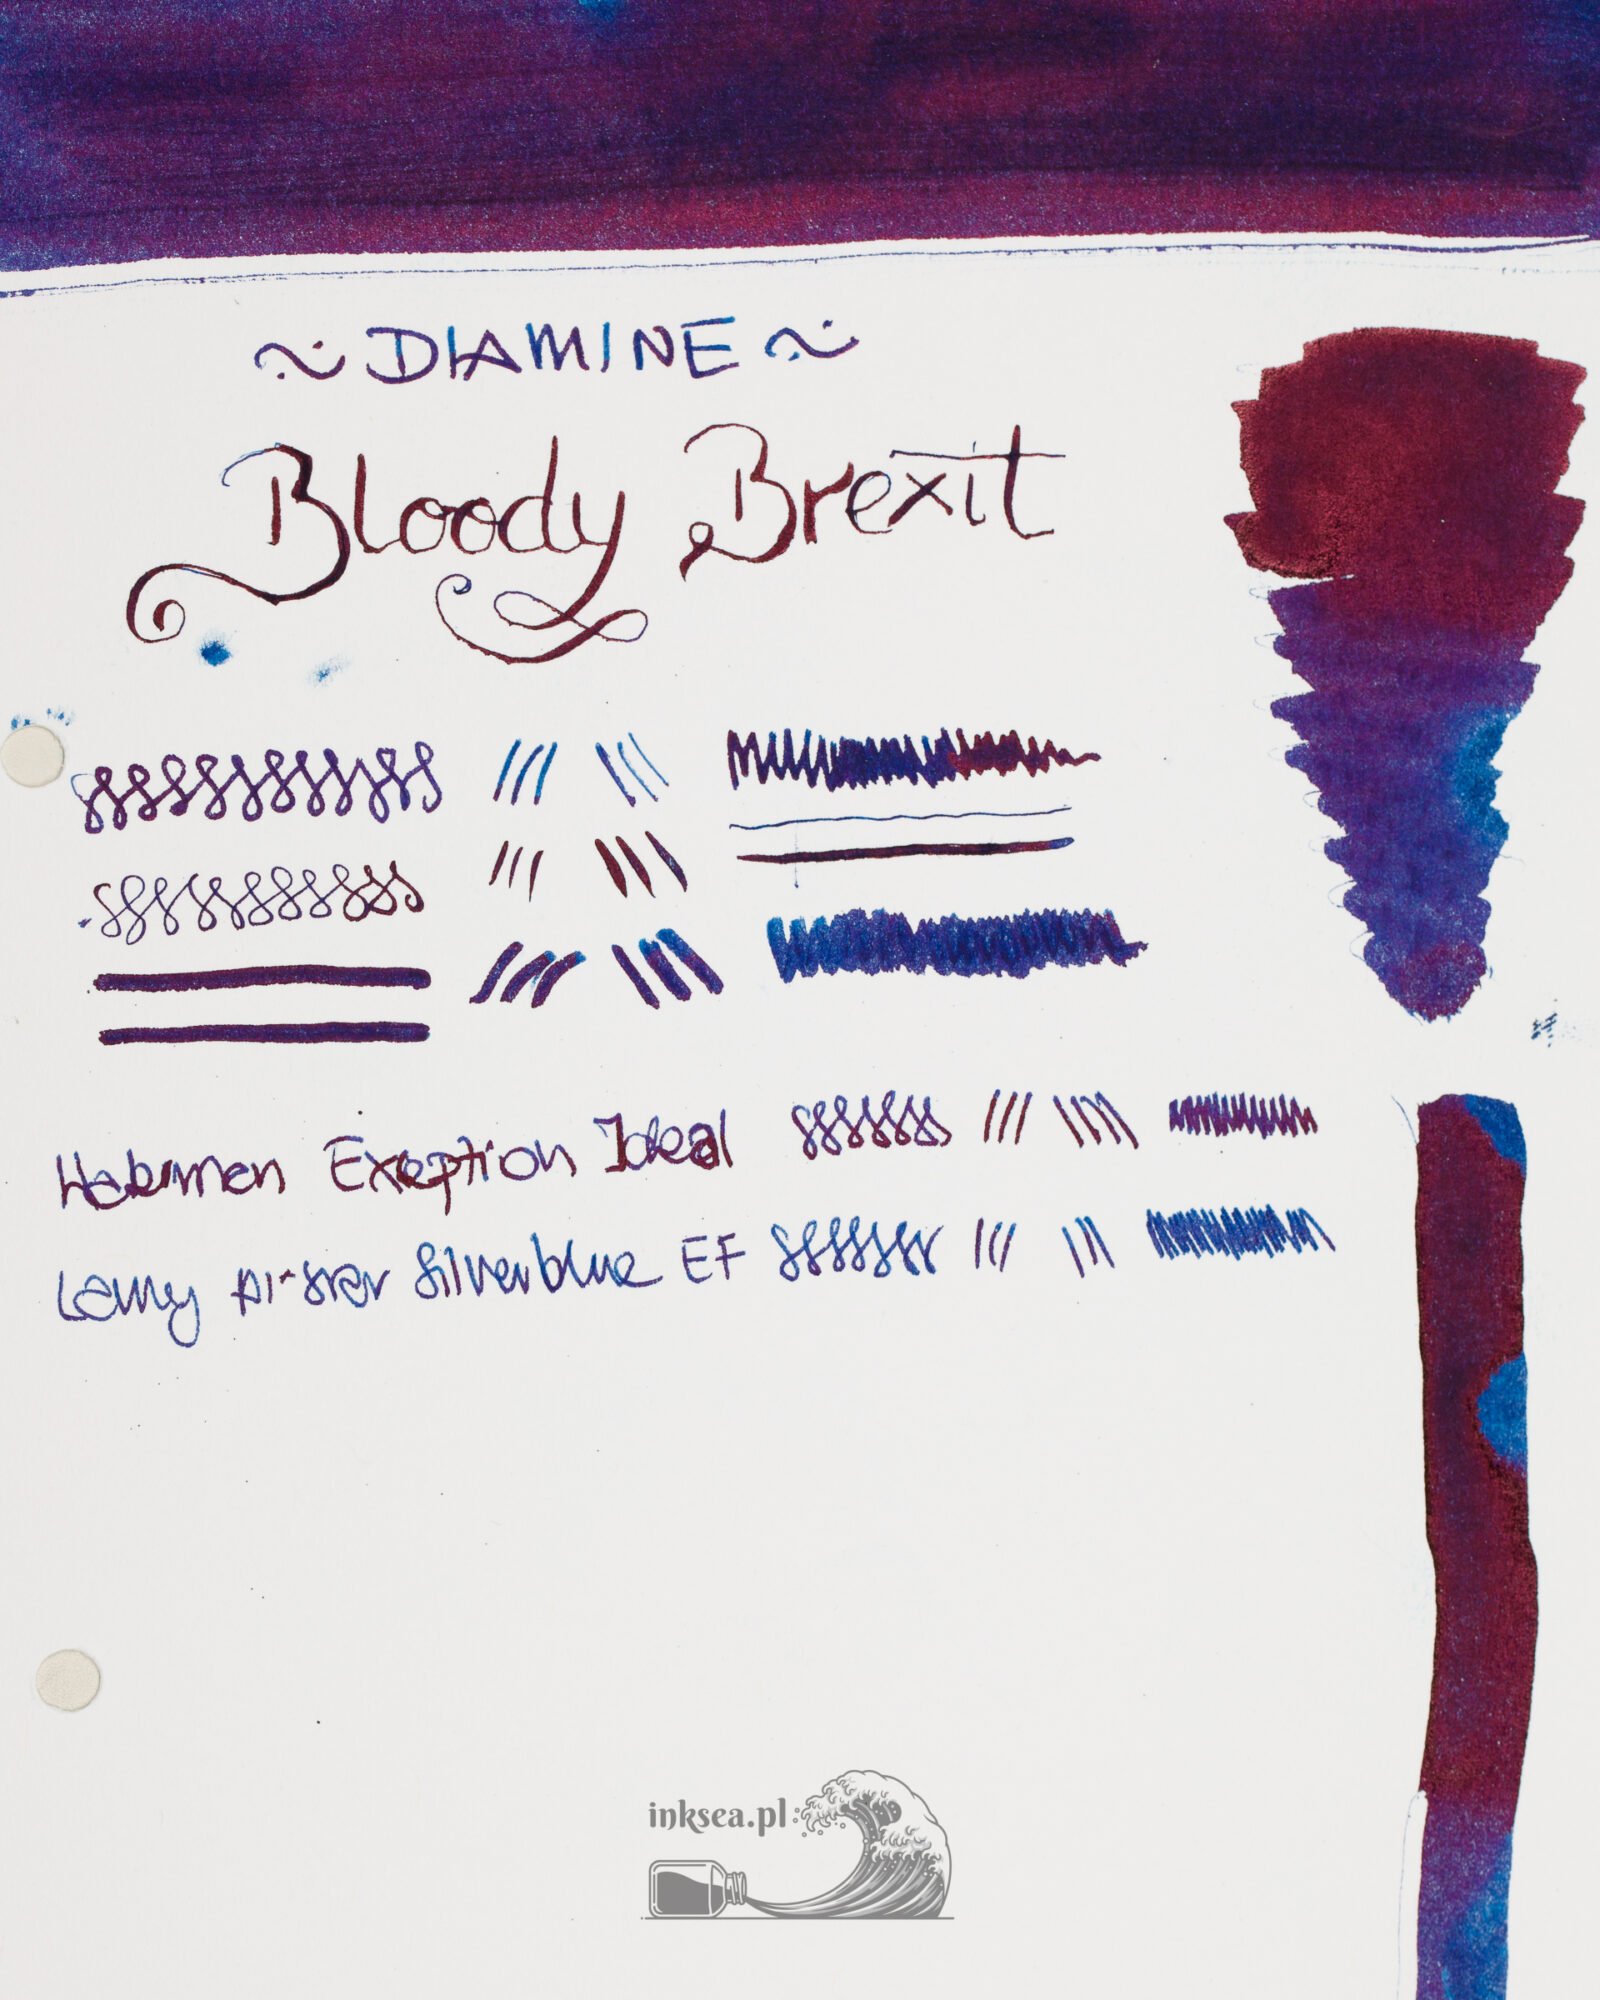 ~ DIAMINE ~
Bloody Brexit
Exeption Ideal
Lamy Al-star Silverblue EF
inksea.pl